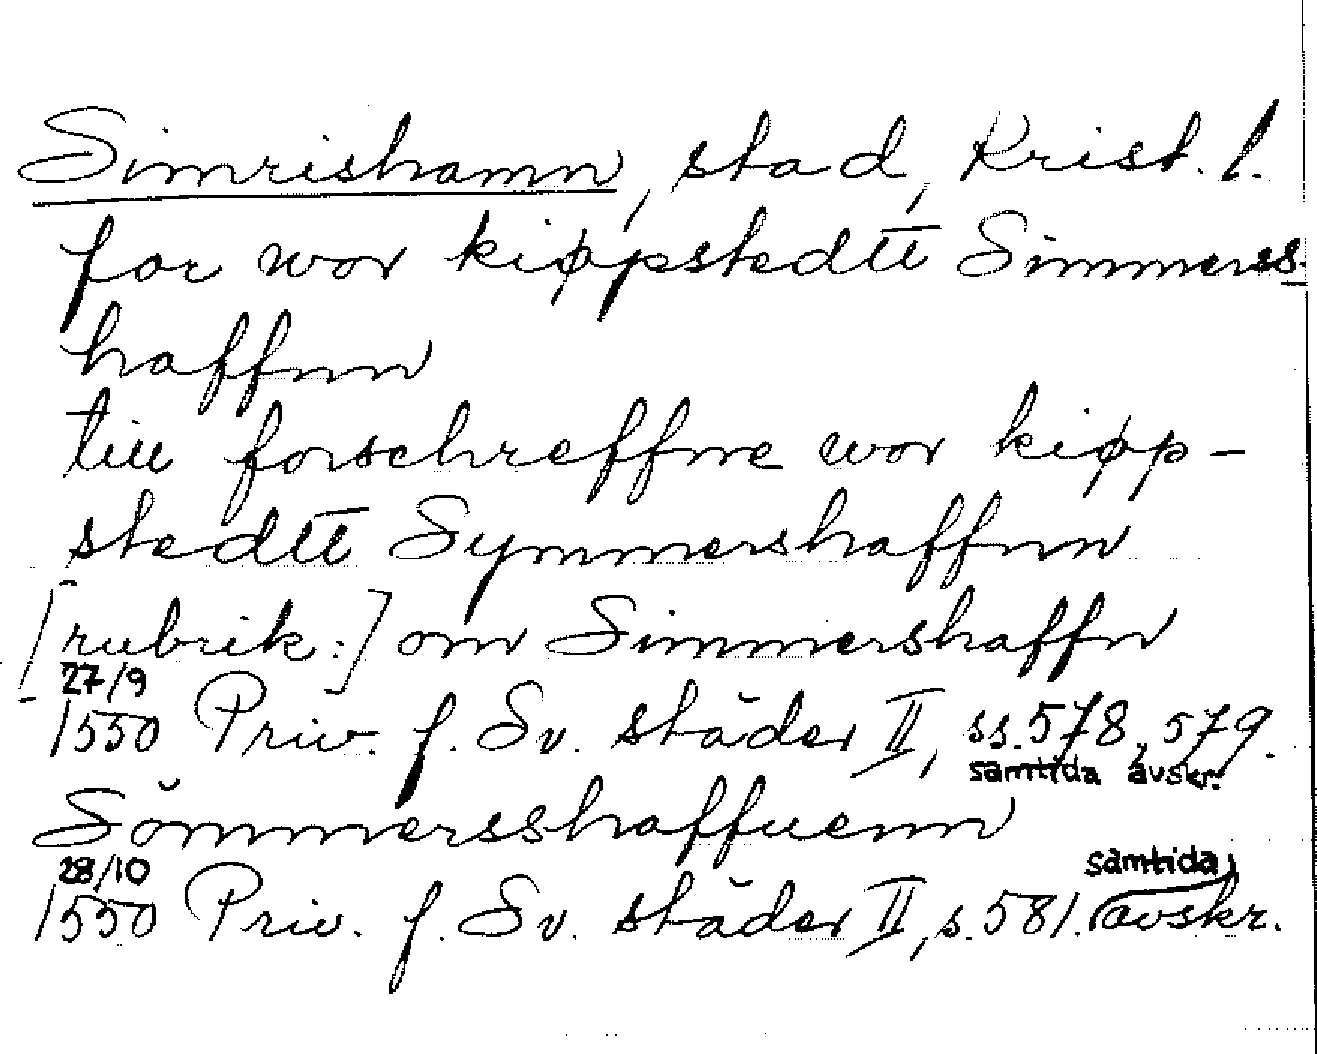 Simrishamn, stad, Krist. l.
for wor kiøpstedtt Simmerss-
haffnn
till forschreffne wor kiøp-
stedtt Symmershaffnn
[rubrik:] om Simmershaffn
27/9
1550 Priv. f. Sv. städer II, ss. 578, 579.
samtida avskr.
Sömmersshaffuenn
28/10 samtida
1550 Priv. f. Sv. städer II, s. 581. avskr.